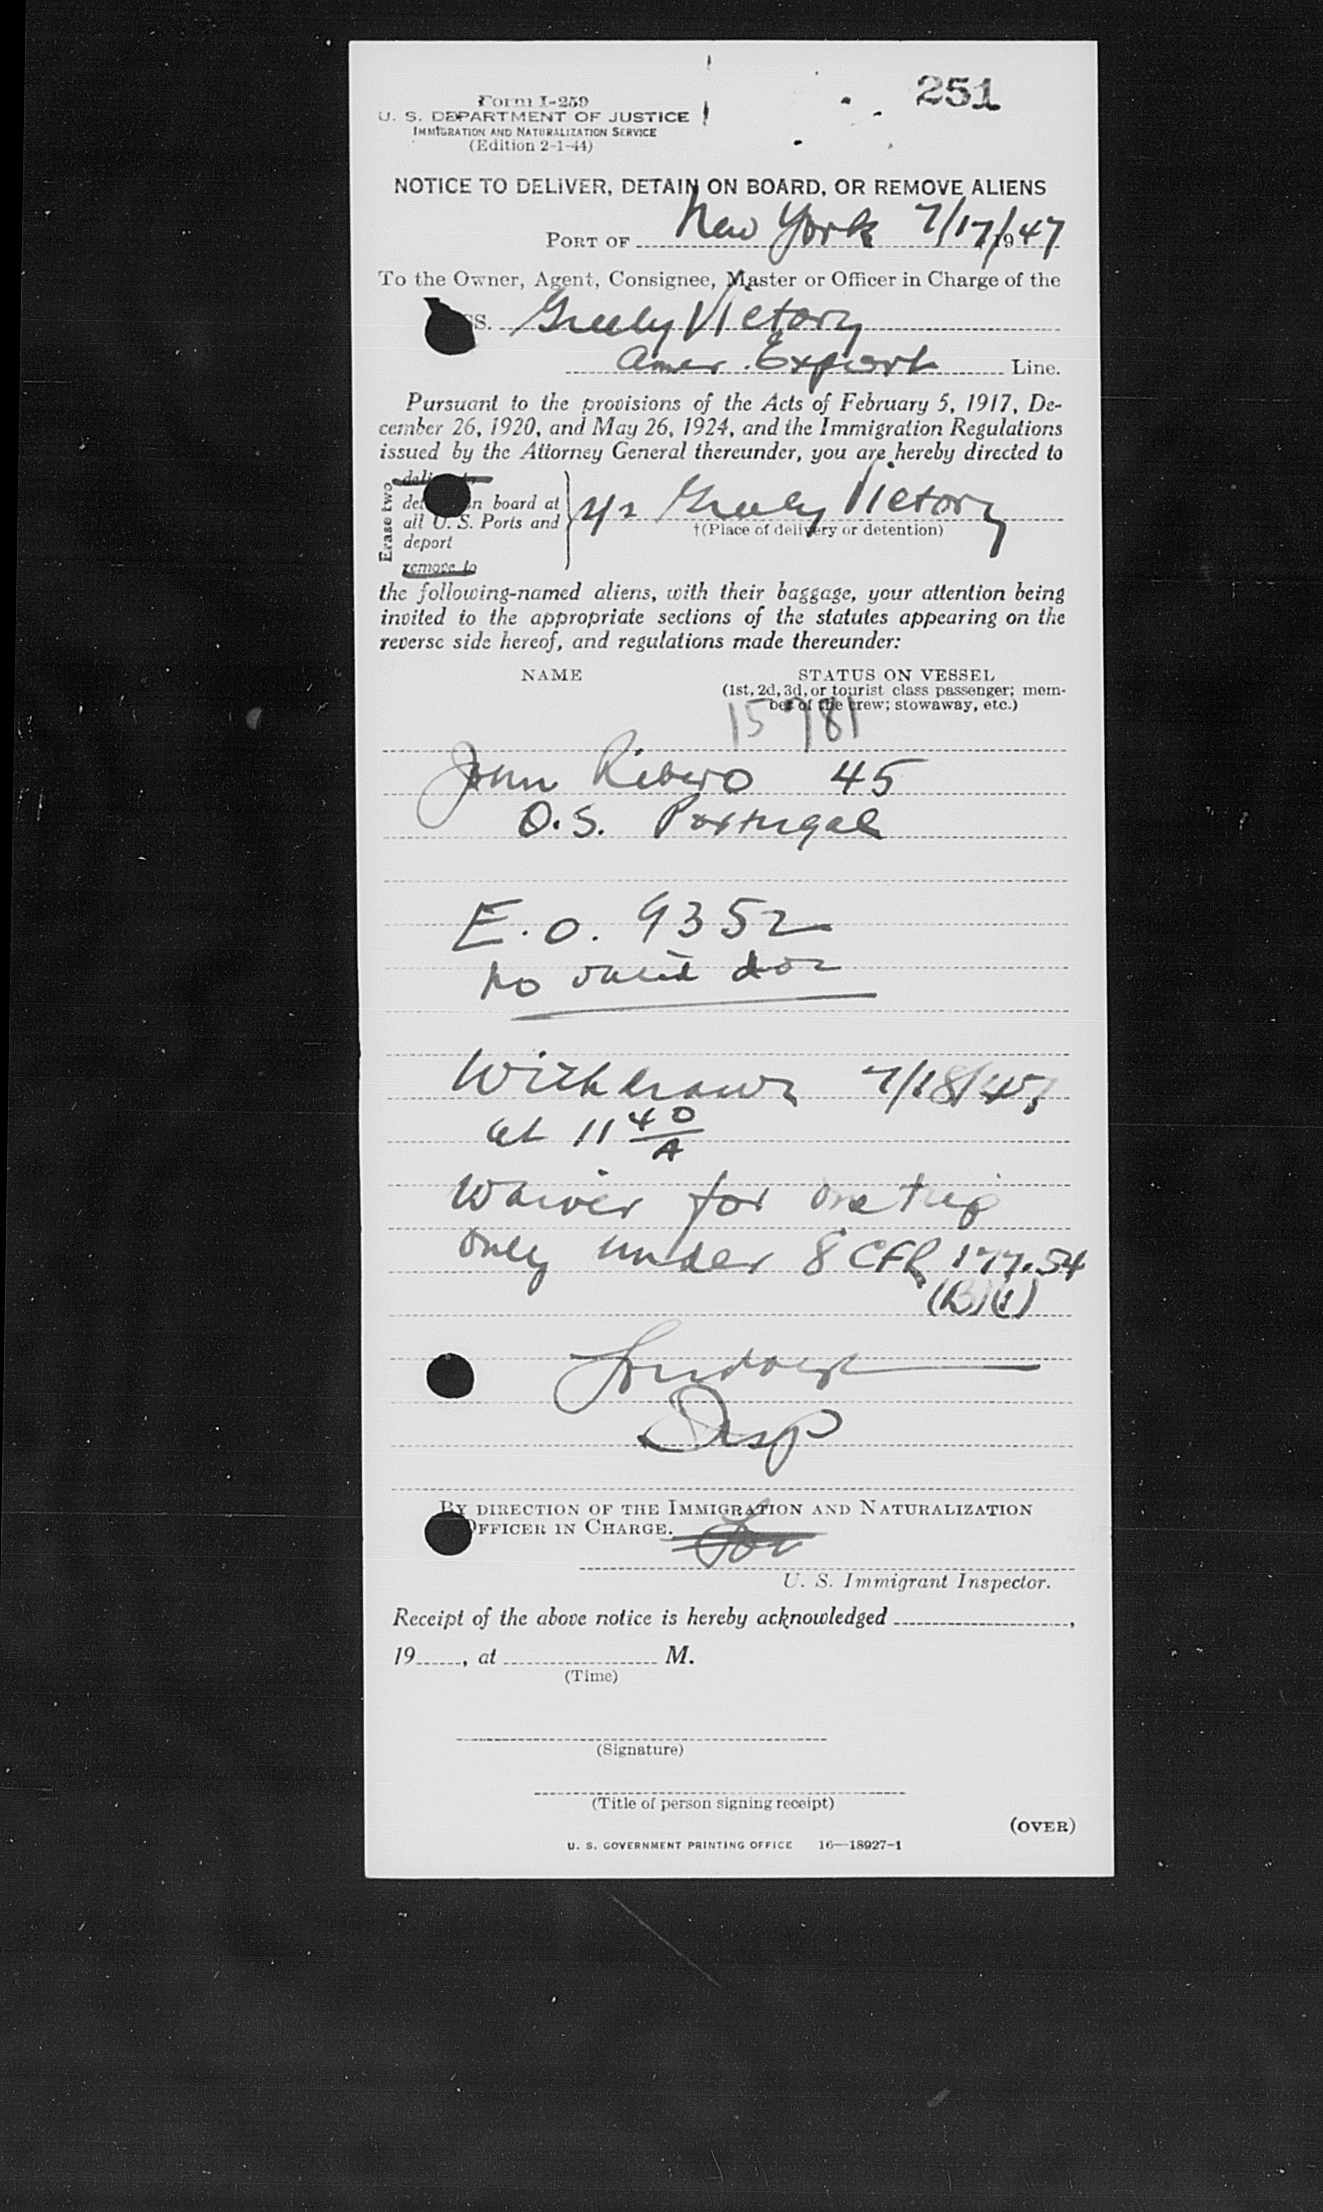 251
Form I-259
U. S. DEPARTMENT OF JUSTICE
IMMIGRATION AND NATURALIZATION SERVICE
(Edition 2-1-44)
NOTICE TO DELIVER, DETAIN ON BOARD, OR REMOVE ALIENS
PORT OF New York 7/17/1947
To the Owner, Agent, Consignee, Master or Officer in Charge of the
SS. Greely Victory
Amer. Export Line.
Pursuant to the provisions of the Acts of February 5, 1917, De-
cember 26, 1920, and May 26, 1924, and the Immigration Regulations
issued by the Attorney General thereunder, you are hereby directed to
Erase two
deliver to
detain on board at
all U. S. Ports and
deport
remove to
s/s Greely Victory
†(Place of delivery or detention)
the following-named aliens, with their baggage, your attention being
invited to the appropriate sections of the statutes appearing on the
reverse side hereof, and regulations made thereunder:
NAME STATUS ON VESSEL
(1st, 2d, 3d, or tourist class passenger; mem-
ber of the crew; stowaway, etc.)
15781
John Ribero 45
O.S. Portugal
E.O. 9352
no valid doc
Withdrawn 7/18/47
at 11 40/A
Waiver for one trip
only under 8 CFR 177.54
(B)(1)
Insp
BY DIRECTION OF THE IMMIGRATION AND NATURALIZATION
OFFICER IN CHARGE.
U. S. Immigrant Inspector.
Receipt of the above notice is hereby acknowledged ,
19 , at M.
(Time)
(Signature)
(Title of person signing receipt)
(OVER)
U. S. GOVERNMENT PRINTING OFFICE 16—18927-1